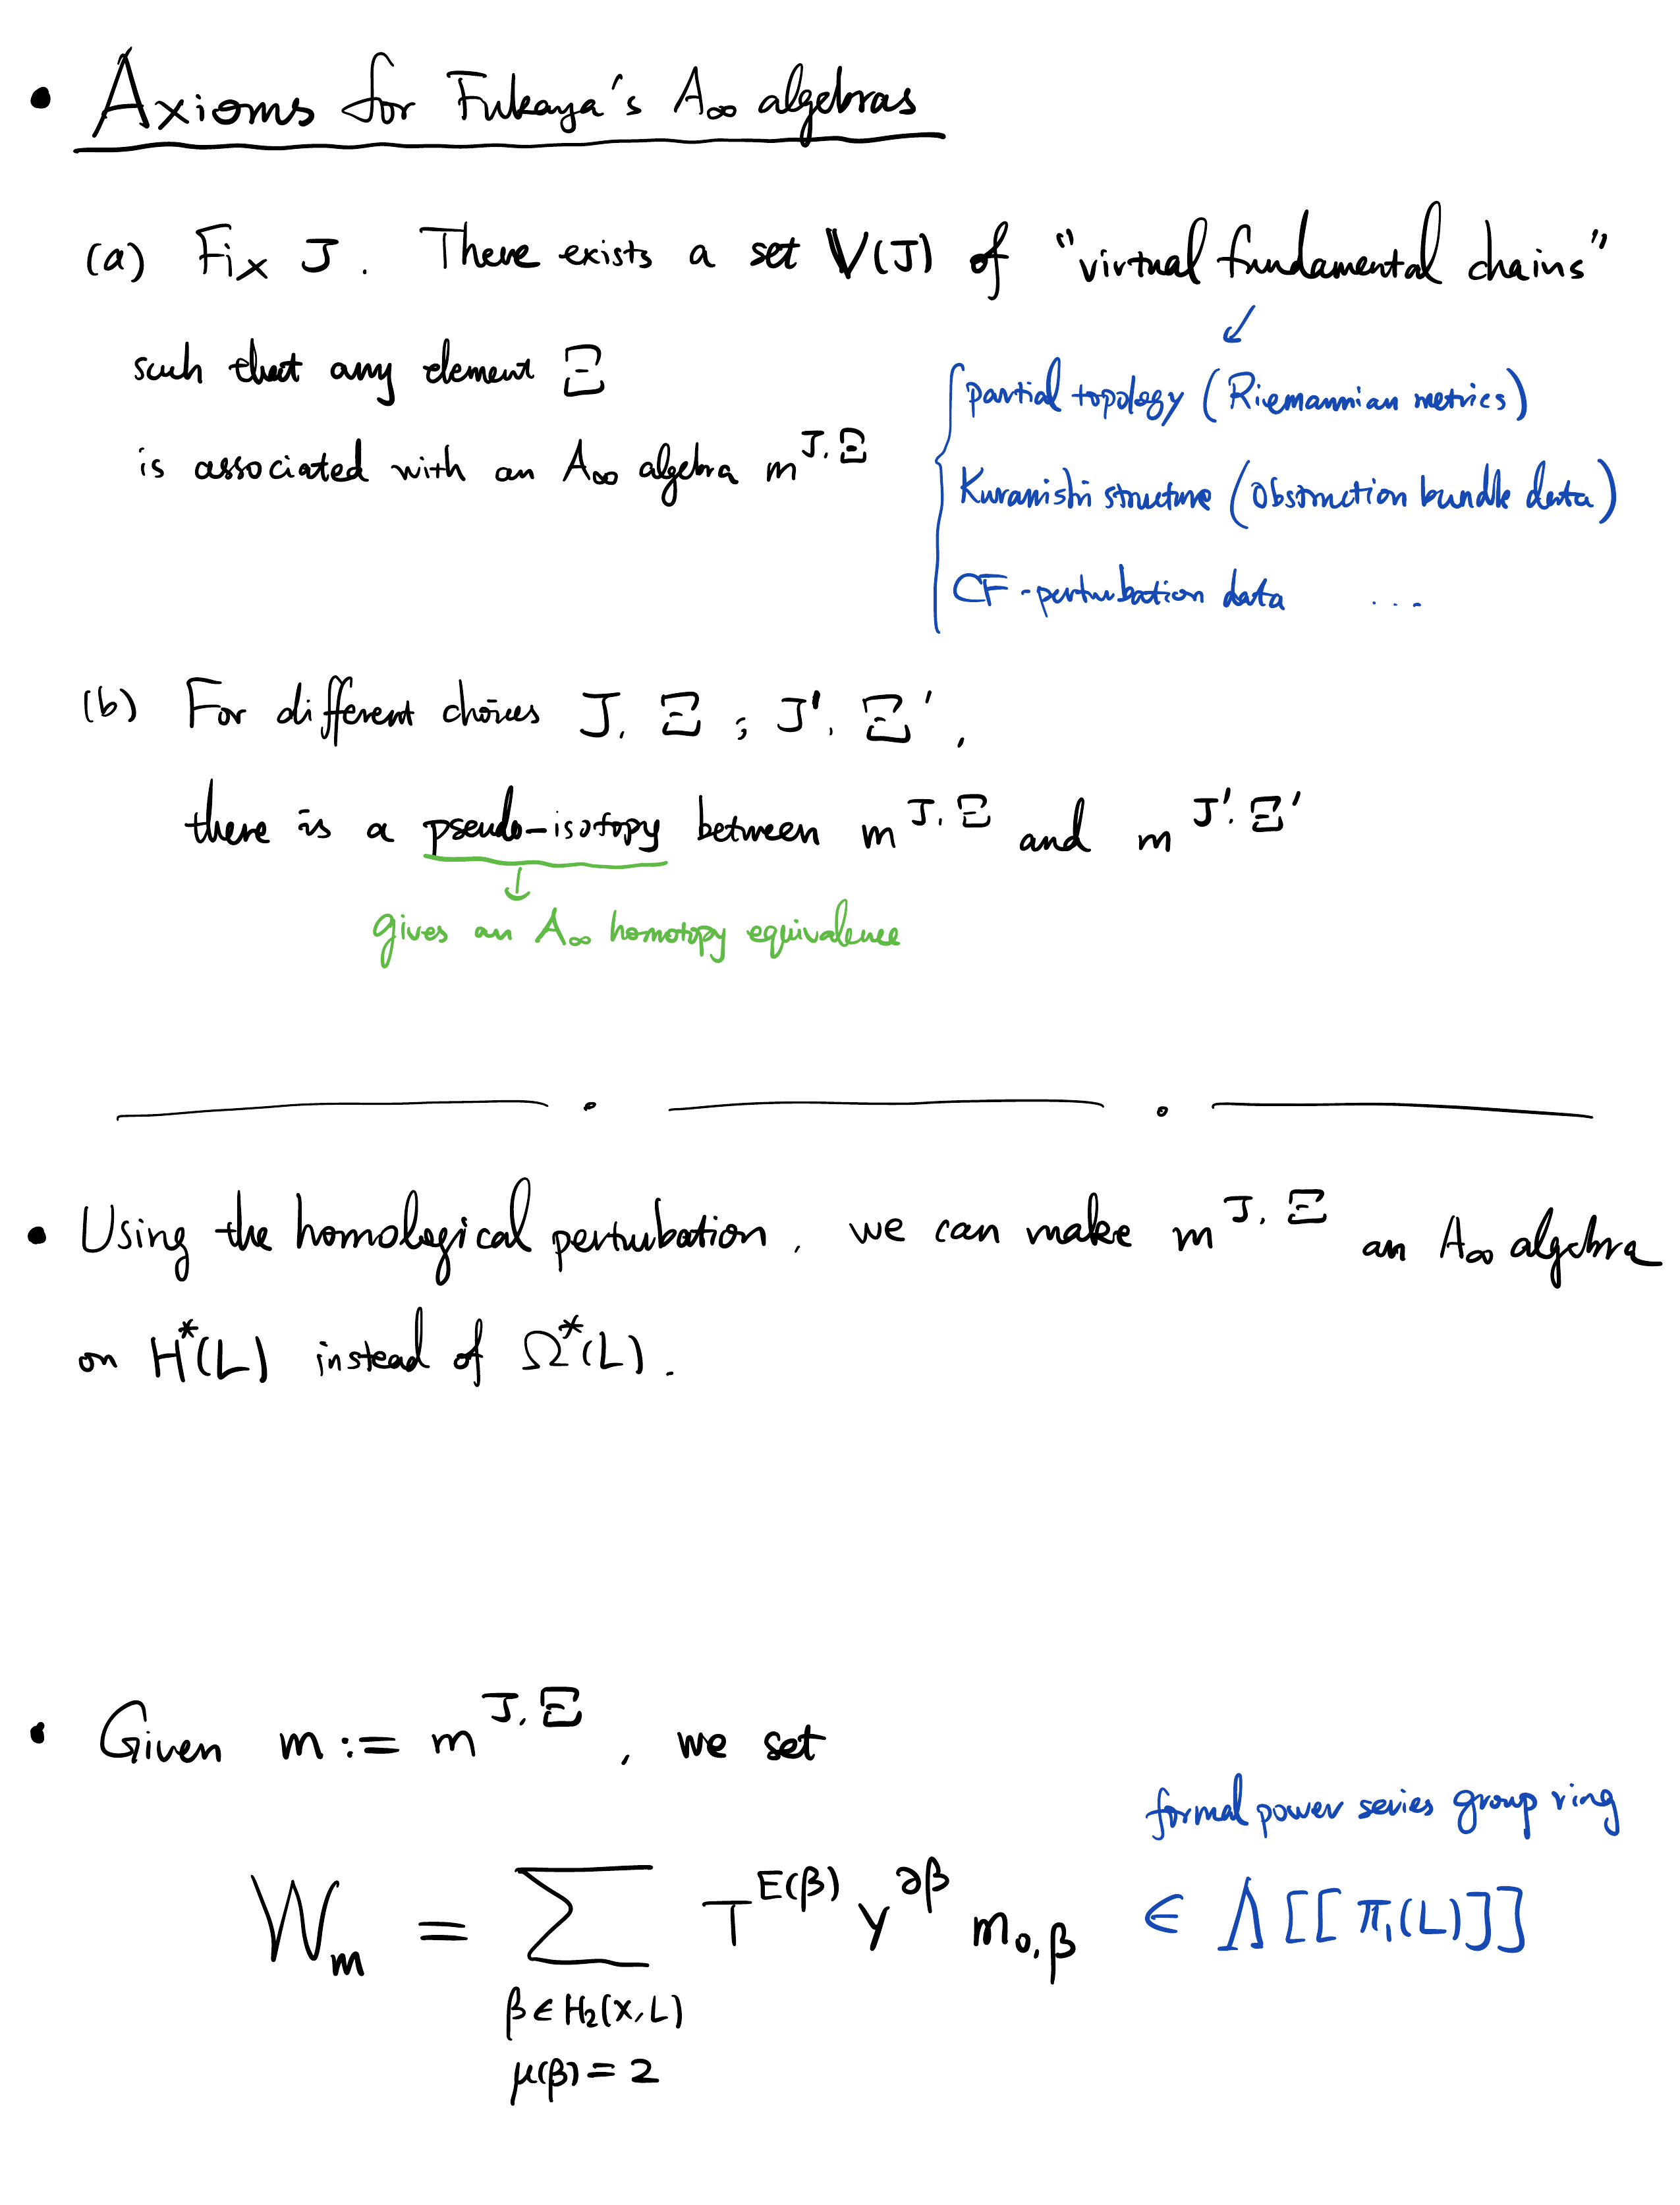 • Axioms for Fukaya's A∞ algebras
(a) Fix J. There exists a set V(J) of "virtual fundamental chains"
such that any element Ξ
is associated with an A∞ algebra m^{J,Ξ}
partial topology (Riemannian metrics)
Kuranishi structure (obstruction bundle data)
CF-perturbation data ...
(b) For different choices J, Ξ ; J', Ξ',
there is a pseudo-isotopy between m^{J,Ξ} and m^{J',Ξ'}
gives an A∞ homotopy equivalence
• Using the homological perturbation, we can make m^{J,Ξ} an A∞ algebra
on H*(L) instead of Ω*(L).
• Given m := m^{J,Ξ}, we set
formal power series group ring
W_m = Σ T^{E(β)} Y^{∂β} m_{0,β} ∈ Λ[[π₁(L)]]
β ∈ H₂(X,L)
μ(β) = 2